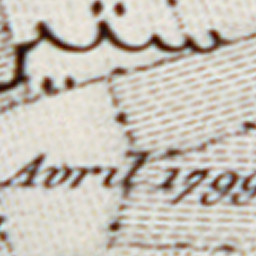 Avril 1799